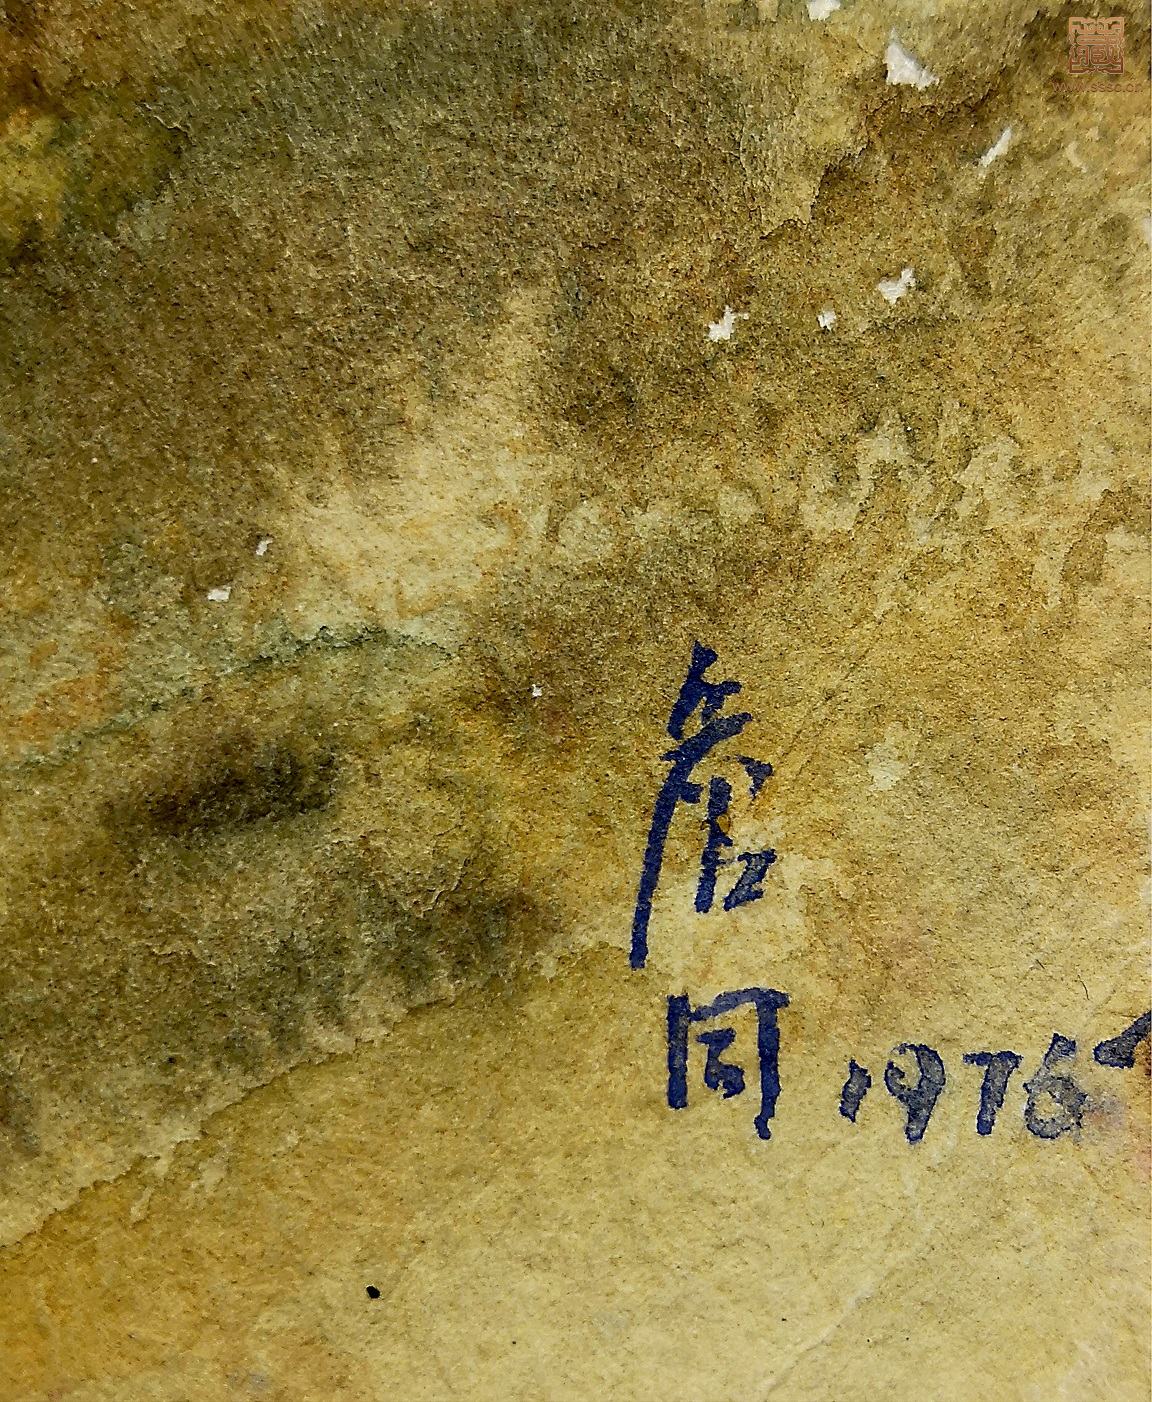 藏
www.sssc.cn
詹
同
1975